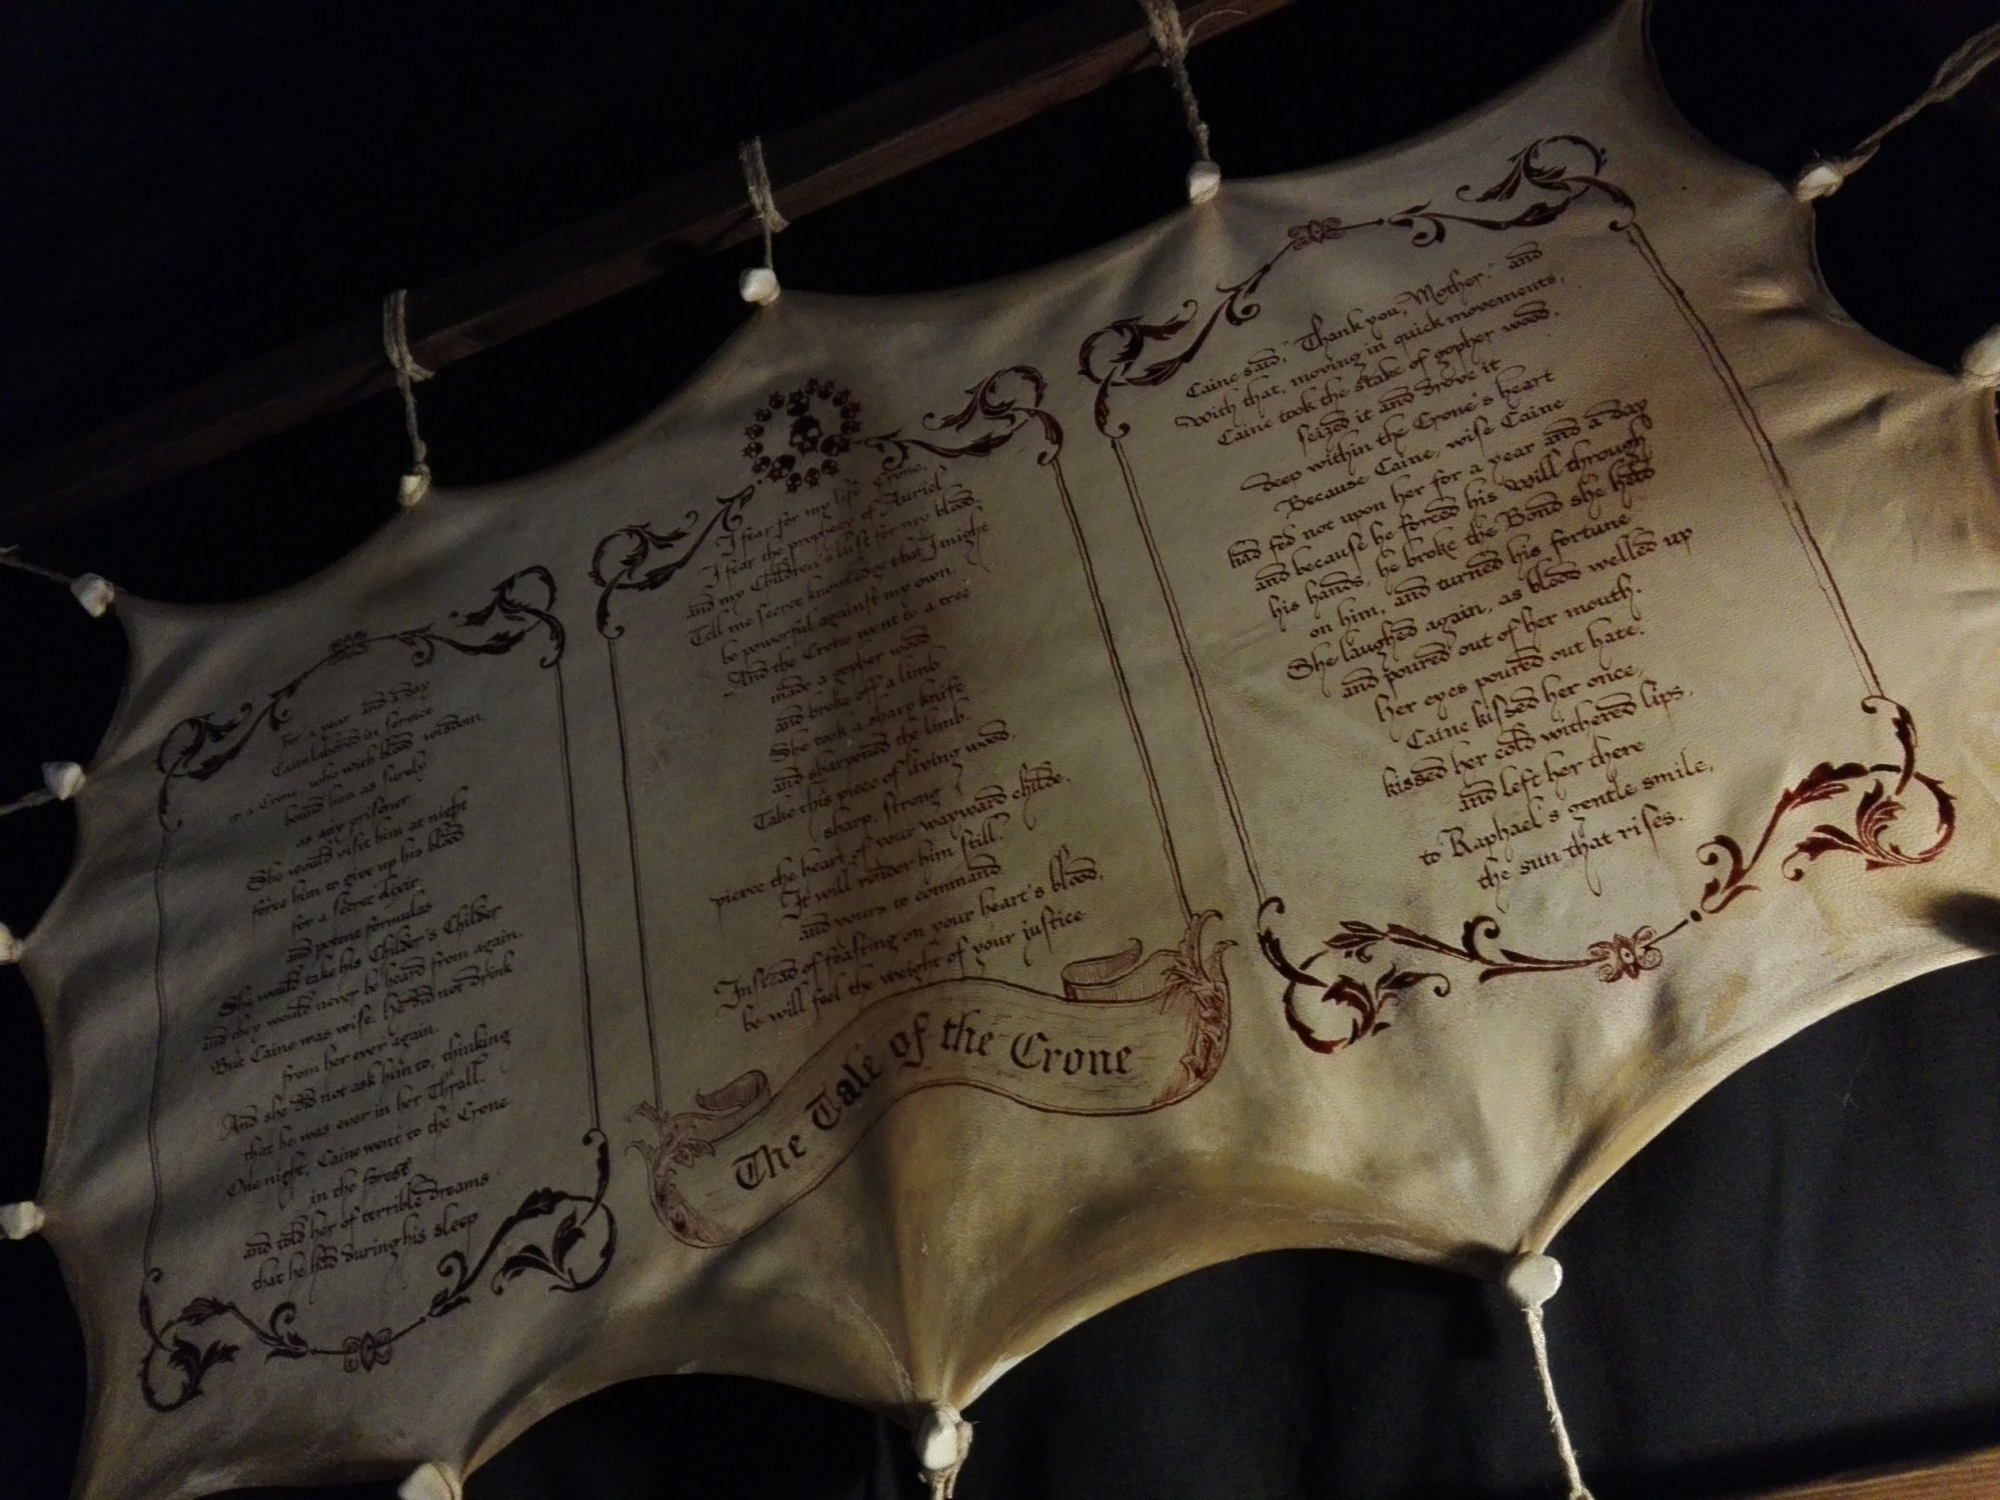 For a year and a day
Caine labored in service
to a Crone, who with blood wisdom,
bound him as surely
as any prisoner
She would visit him at night
force him to give up his blood
for a secret elixir
and potent formulas
She would take his Childer's Childer
and they would never be heard from again.
But Caine was wise. He did not drink
from her ever again.
And she did not ask him to, thinking
that he was ever in her Thrall.
One night, Caine went to the Crone
in the forest
and told her of terrible dreams
that he had during his sleep
I fear for my life Crone,
I fear the prophecy of Auriel
and my Children's lust for my blood.
Tell me secret knowledge that I might
be powerful against my own.
And the Crone went to a tree
made a gopher wood
and broke off a limb
She took a sharp knife
and sharpened the limb.
Take this piece of living wood,
sharp, strong
pierce the heart of your wayward childe.
It will render him still.
and yours to command.
Instead of feasting on your heart's blood,
he will feel the weight of your justice
The Tale of the Crone
Caine said, "Thank you, Mother," and
with that, moving in quick movements,
Caine took the stake of gopher wood,
seized it and drove it
deep within the Crone's heart
Because Caine, wise Caine
had fed not upon her for a year and a day
and because he forced his Will through
his hands, he broke the Bond she held
on him, and turned his fortune
She laughed again, as blood welled up
and poured out of her mouth.
her eyes poured out hate.
Caine kissed her once,
kissed her cold withered lips,
and left her there
to Raphael's gentle smile,
the sun that rises.